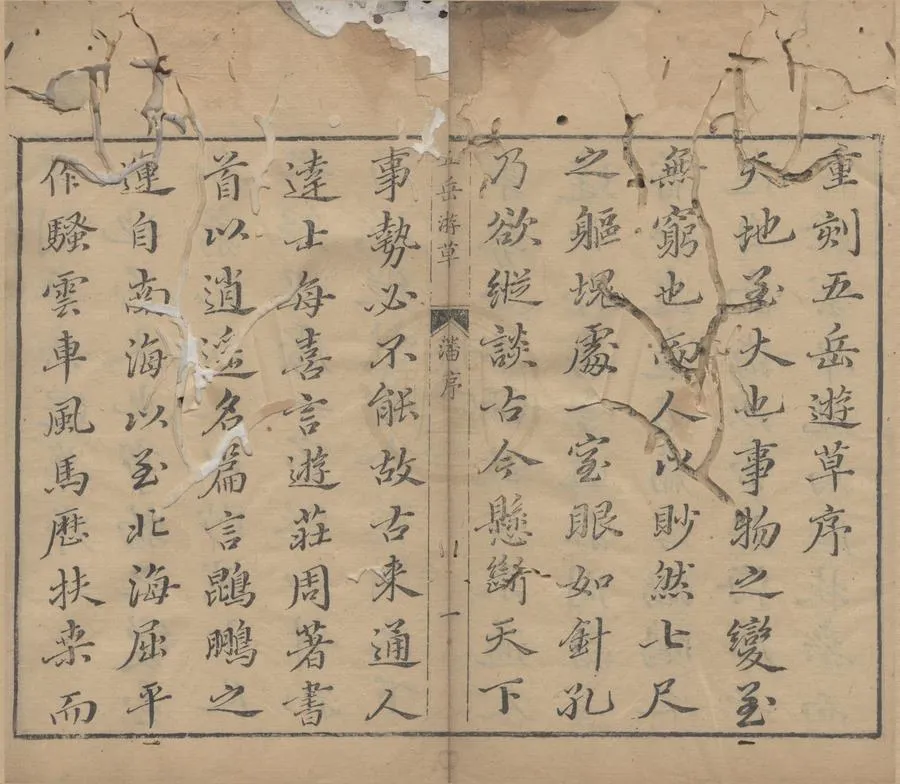 重刻五岳遊草序
天地至大也事物之變至
無窮也而人以眇然七尺
之軀塊處一室眼如針孔
乃欲縱談古今懸斷天下
五岳游草
潘序
一
事勢必不能故古來通人
達士每喜言遊莊周著書
首以逍遙名篇言鵾鵬之
運自南海以至北海屈平
作騷雲車風馬歷扶桒而